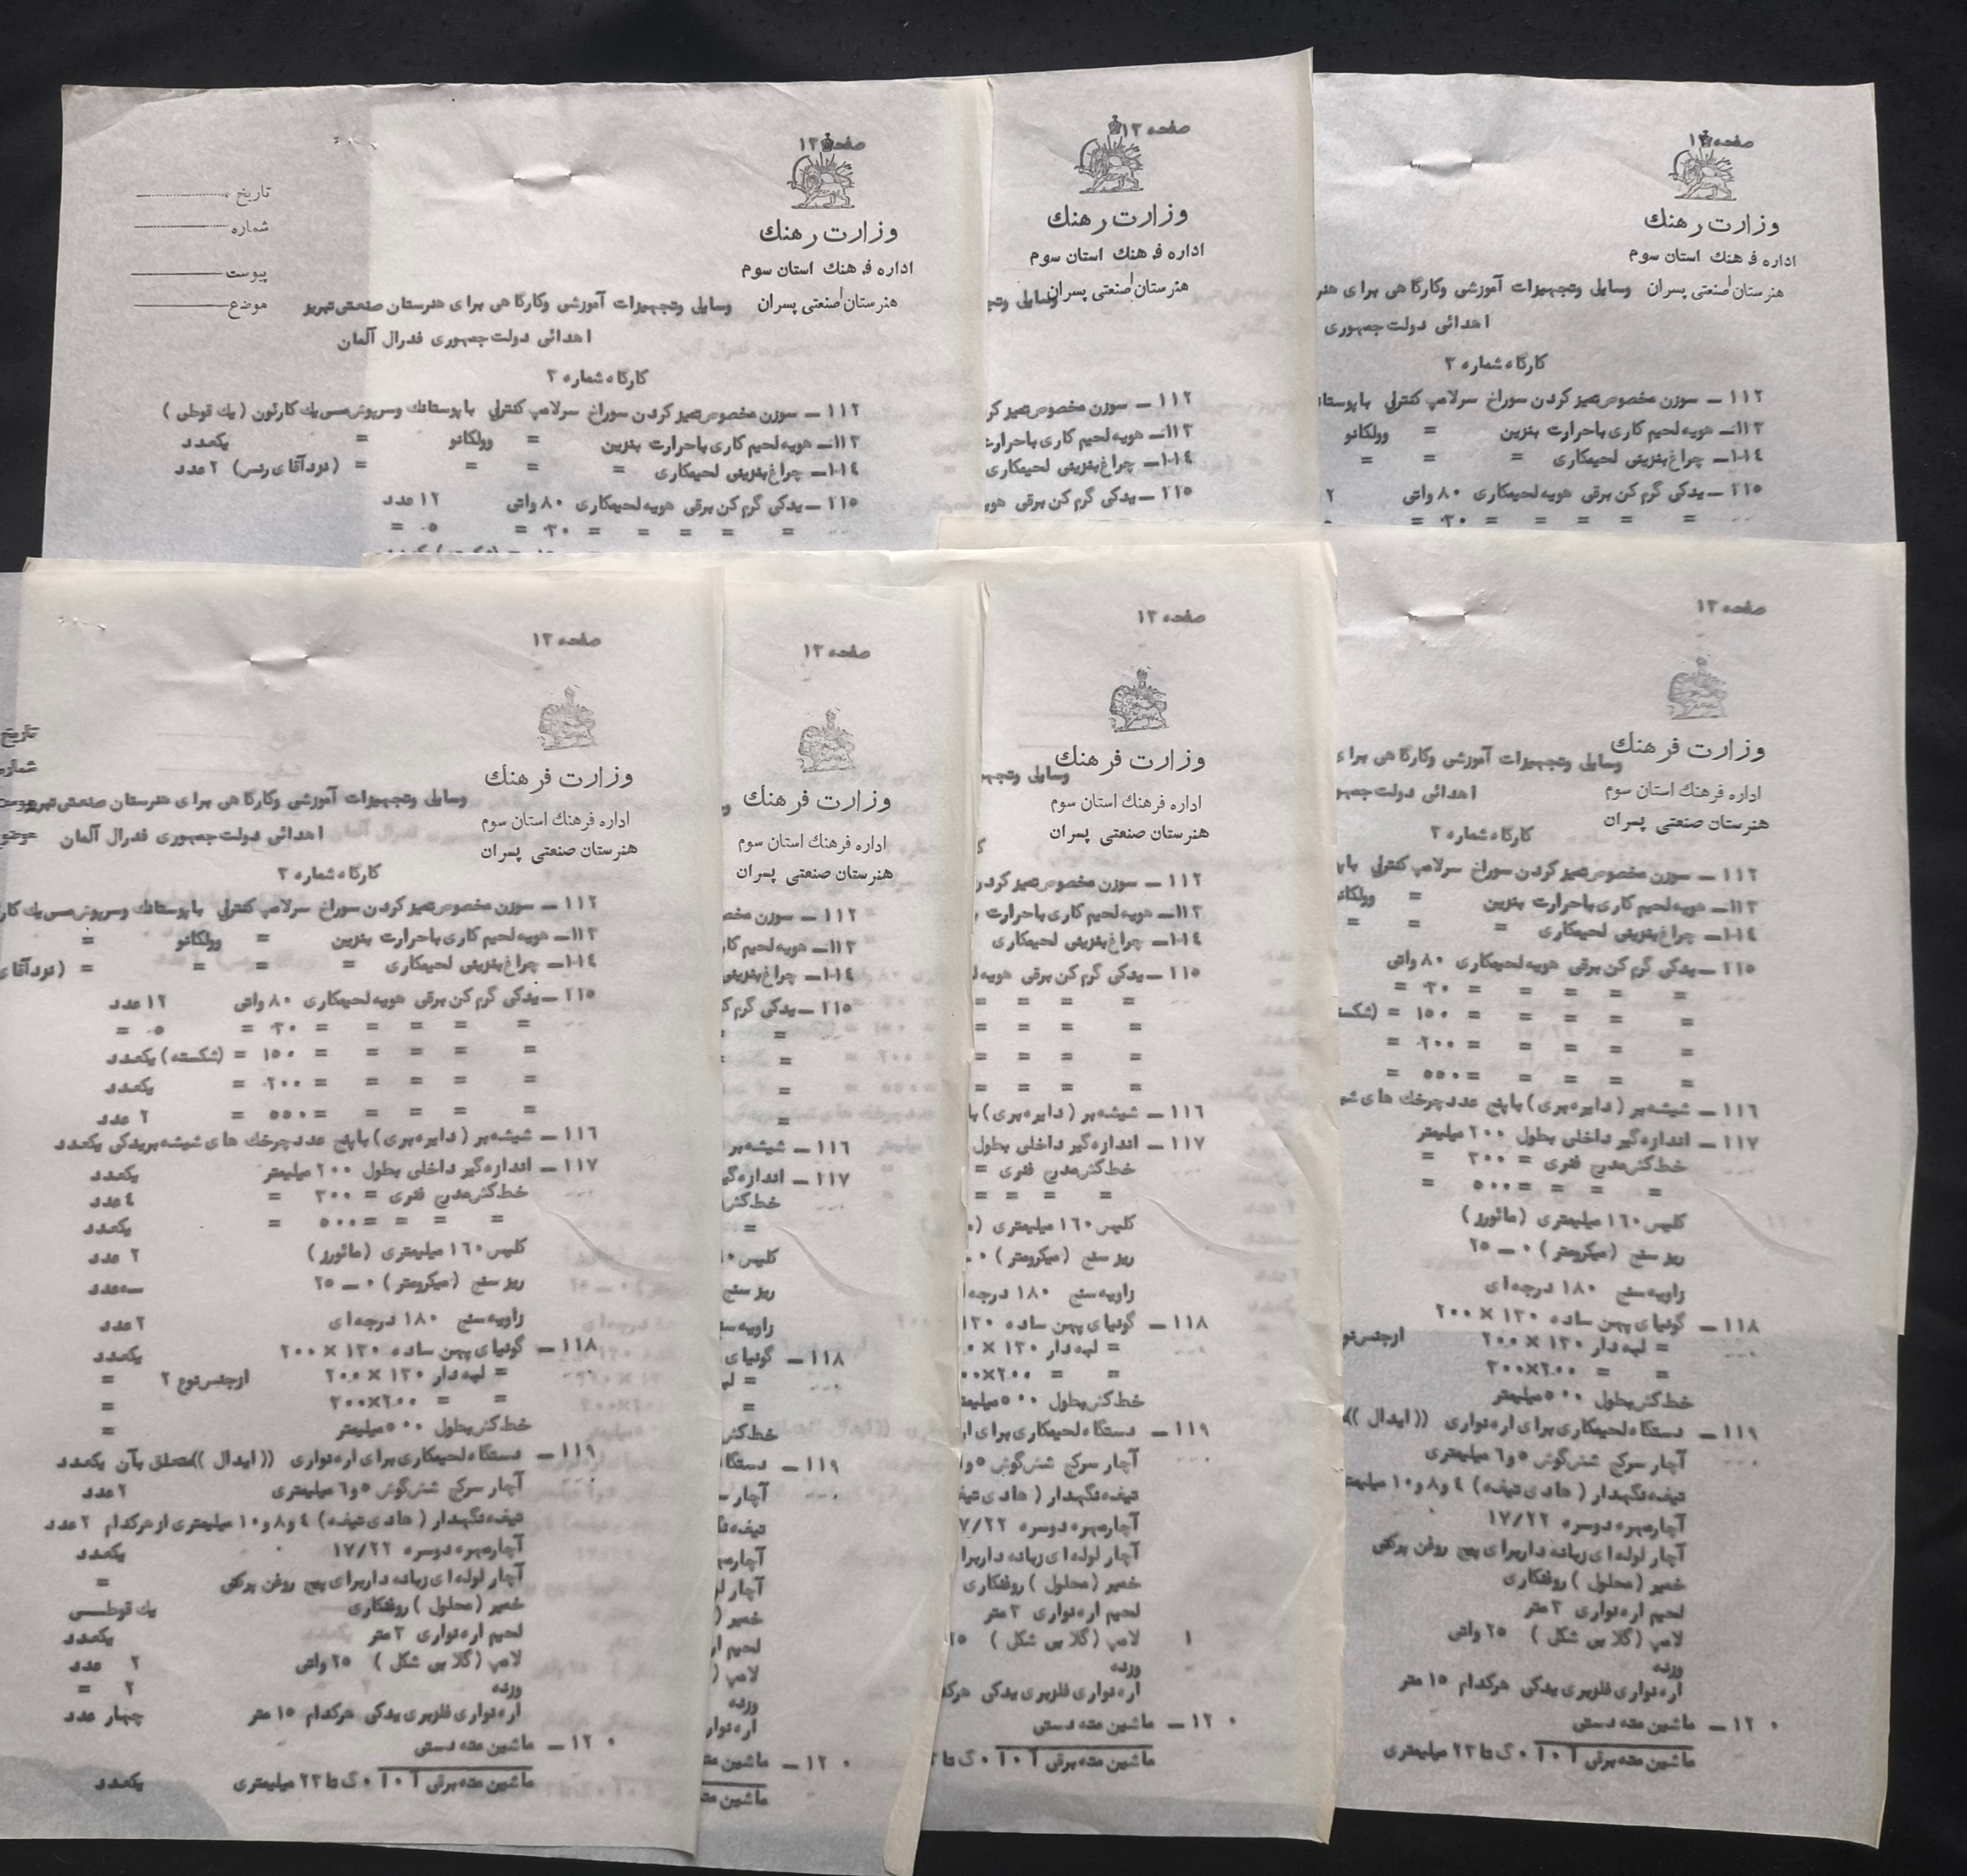 صفحه ۱۳
وزارت رهنك
اداره ف هنك استان سوم
هنرستان صنعتی پسران
تاریخ
شماره
پیوست
موضوع
وسایل وتجهیزات آموزشی وکارگاهی برای هنرستان صنعتی تبریز
اهدائی دولت جمهوری فدرال آلمان
کارگاه شماره ۳
۱۱۲ ــ سوزن مخصوص تمیز کردن سوراخ سرلامپ کنترلی باپوستانك وسرپوش مسی یك کارتون (یك قوطی)
۱۱۳ــ هویه لحیم کاری باحرارت بنزین = وولکانو = یکعدد
۱۱٤ــ چراغ بنزینی لحیمکاری = = = = (نزد آقای رئس) ۲ عدد
۱۱۵ ــ یدکی گرم کن برقی هویه لحیمکاری ۸۰ واتی ۱۲ عدد
صفحه ۱۳
وزارت رهنك
اداره ف هنك استان سوم
هنرستان صنعتی پسران
وسایل وتج
۱۱۲ ــ سوزن مخصوص تمیز کر
۱۱۳ــ هویه لحیم کاری باحرارت
۱۱٤ــ چراغ بنزینی لحیمکاری
۱۱۵ ــ یدکی گرم کن برقی هوی
صفحه ۱۳
وزارت رهنك
اداره ف هنك استان سوم
هنرستان صنعتی پسران
وسایل وتجهیزات آموزشی وکارگاهی برای هنر
اهدائی دولت جمهوری
کارگاه شماره ۳
۱۱۲ ــ سوزن مخصوص تمیز کردن سوراخ سرلامپ کنترلی باپوستا
۱۱۳ــ هویه لحیم کاری باحرارت بنزین = وولکانو
۱۱٤ــ چراغ بنزینی لحیمکاری = = =
۱۱۵ ــ یدکی گرم کن برقی هویه لحیمکاری ۸۰ واتی
صفحه ۱۳
وزارت فرهنك
اداره فرهنك استان سوم
هنرستان صنعتی پسران
وسایل وتجهیزات آموزشی وکارگاهی برای هنرستان صنعتی تبریز
اهدائی دولت جمهوری فدرال آلمان
کارگاه شماره ۳
۱۱۲ ــ سوزن مخصوص تمیز کردن سوراخ سرلامپ کنترلی باپوستانك وسرپوش مسی یك کار
۱۱۳ــ هویه لحیم کاری باحرارت بنزین = وولکانو =
۱۱٤ــ چراغ بنزینی لحیمکاری = = = = (نزد آقای
۱۱۵ ــ یدکی گرم کن برقی هویه لحیمکاری ۸۰ واتی ۱۲ عدد
= = = = = ۳۰ = ۵ =
= = = = = ۱۵۰ = (شکسته) یکعدد
= = = = = ۲۰۰ = یکعدد
= = = = = ۵۵۰ = ۲ عدد
۱۱٦ ــ شیشه بر (دایره بری) با پنج عدد چرخك های شیشه بر یدکی یکعدد
۱۱۷ ــ اندازه گیر داخلی بطول ۲۰۰ میلیمتر یکعدد
خط کش مدرج فنری = ۳۰۰ = ٤ عدد
= = = = ۵۰۰ = یکعدد
کلیس ۱٦۰ میلیمتری (مائورر) ۲ عدد
ریز سنج (میکرومتر) ۰ ــ ۲۵ سه عدد
زاویه سنج ۱۸۰ درجه ای ۲ عدد
۱۱۸ ــ گونیای پهن ساده ۱۳۰ × ۲۰۰ یکعدد
= لبه دار ۱۳۰ × ۲۰۰ ازجنس نوع ۲ =
= = ۲۰۰×۳۰۰ =
خط کش بطول ۵۰۰ میلیمتر =
۱۱۹ ــ دستگاه لحیمکاری برای اره نواری ((ایدال)) متعلق بآن یکعدد
آچار سرکج شش گوش ۵ و ٦ میلیمتری ۲ عدد
تیغه نگهدار (هادی تیغه) ٤ و ۸ و ۱۰ میلیمتری از هرکدام ۲ عدد
آچار مهره دوسره ۱۷/۲۲ یکعدد
آچار لوله ای زبانه دار برای پیچ روغن پرکنی =
خمیر (محلول) روغنکاری یك قوطی
لحیم اره نواری ۳ متر یکعدد
لامپ (گلابی شکل) ۲۵ واتی ۲ عدد
وزنه ۲ =
اره نواری فلزبری یدکی هرکدام ۱۵ متر چهار عدد
۱۲۰ ــ ماشین مته دستی
ماشین مته برقی ۲۳ میلیمتری یکعدد
صفحه ۱۳
وزارت فرهنك
اداره فرهنك استان سوم
هنرستان صنعتی پسران
۱۱۲ ــ سوزن مخص
۱۱۳ــ هویه لحیم کار
۱۱٤ــ چراغ بنزینی
۱۱۵ ــ یدکی گرم ک
۱۱٦ ــ شیشه بر
۱۱۷ ــ اندازه گی
خط کش
کلیس
ریز سنج
زاویه س
۱۱۸ ــ گونیای
= لب
خط کش
۱۱۹ ــ دستگا
آچار س
تیغه نگ
آچارمه
آچار لو
خمیر (
لحیم ار
لامپ (
وزنه
اره نوار
۱۲۰ ــ ماشین مت
ماشین مت
صفحه ۱۳
وزارت فرهنك
اداره فرهنك استان سوم
هنرستان صنعتی پسران
وسایل وتجهی
۱۱۲ ــ سوزن مخصوص تمیز کردن
۱۱۳ــ هویه لحیم کاری باحرارت
۱۱٤ــ چراغ بنزینی لحیمکاری
۱۱۵ ــ یدکی گرم کن برقی هویه ل
۱۱٦ ــ شیشه بر (دایره بری) با
۱۱۷ ــ اندازه گیر داخلی بطول
خط کش مدرج فنری =
کلیس ۱٦۰ میلیمتری
ریز سنج (میکرومتر) ۰ ــ
زاویه سنج ۱۸۰ درجه ا
۱۱۸ ــ گونیای پهن ساده ۱۳۰
= لبه دار ۱۳۰ ×
خط کش بطول ۵۰۰ میلیمت
۱۱۹ ــ دستگاه لحیمکاری برای ار
آچار سرکج شش گوش ۵ و
تیغه نگهدار (هادی تیغ
آچار مهره دوسره ۷/۲۲
آچار لوله ای زبانه دار برا
خمیر (محلول) روغنکاری
لحیم اره نواری ۳ متر
لامپ (گلابی شکل) ۲۵
وزنه
اره نواری فلزبری یدکی هرکد
۱۲۰ ــ ماشین مته دستی
ماشین مته برقی
صفحه ۱۳
وزارت فرهنك
اداره فرهنك استان سوم
هنرستان صنعتی پسران
وسایل وتجهیزات آموزشی وکارگاهی برای
اهدائی دولت جمهو
کارگاه شماره ۳
۱۱۲ ــ سوزن مخصوص تمیز کردن سوراخ سرلامپ کنترلی باپو
۱۱۳ــ هویه لحیم کاری باحرارت بنزین = وولکانو
۱۱٤ــ چراغ بنزینی لحیمکاری = = =
۱۱۵ ــ یدکی گرم کن برقی هویه لحیمکاری ۸۰ واتی
= = = = = ۳۰ =
= = = = = ۱۵۰ = (شکست
= = = = = ۲۰۰ =
= = = = = ۵۵۰ =
۱۱٦ ــ شیشه بر (دایره بری) با پنج عدد چرخك های شی
۱۱۷ ــ اندازه گیر داخلی بطول ۲۰۰ میلیمتر
خط کش مدرج فنری = ۳۰۰ =
= = = = ۵۰۰ =
کلیس ۱٦۰ میلیمتری (مائورر)
ریز سنج (میکرومتر) ۰ ــ ۲۵
زاویه سنج ۱۸۰ درجه ای
۱۱۸ ــ گونیای پهن ساده ۱۳۰ × ۲۰۰
= لبه دار ۱۳۰ × ۲۰۰ ازجنس نو
= = ۲۰۰×۳۰۰
خط کش بطول ۵۰۰ میلیمتر
۱۱۹ ــ دستگاه لحیمکاری برای اره نواری ((ایدال))
آچار سرکج شش گوش ۵ و ٦ میلیمتری
تیغه نگهدار (هادی تیغه) ٤ و ۸ و ۱۰ میلیمت
آچار مهره دوسره ۱۷/۲۲
آچار لوله ای زبانه دار برای پیچ روغن پرکنی
خمیر (محلول) روغنکاری
لحیم اره نواری ۳ متر
لامپ (گلابی شکل) ۲۵ واتی
وزنه
اره نواری فلزبری یدکی هرکدام ۱۵ متر
۱۲۰ ــ ماشین مته دستی
ماشین مته برقی ۲۳ میلیمتری